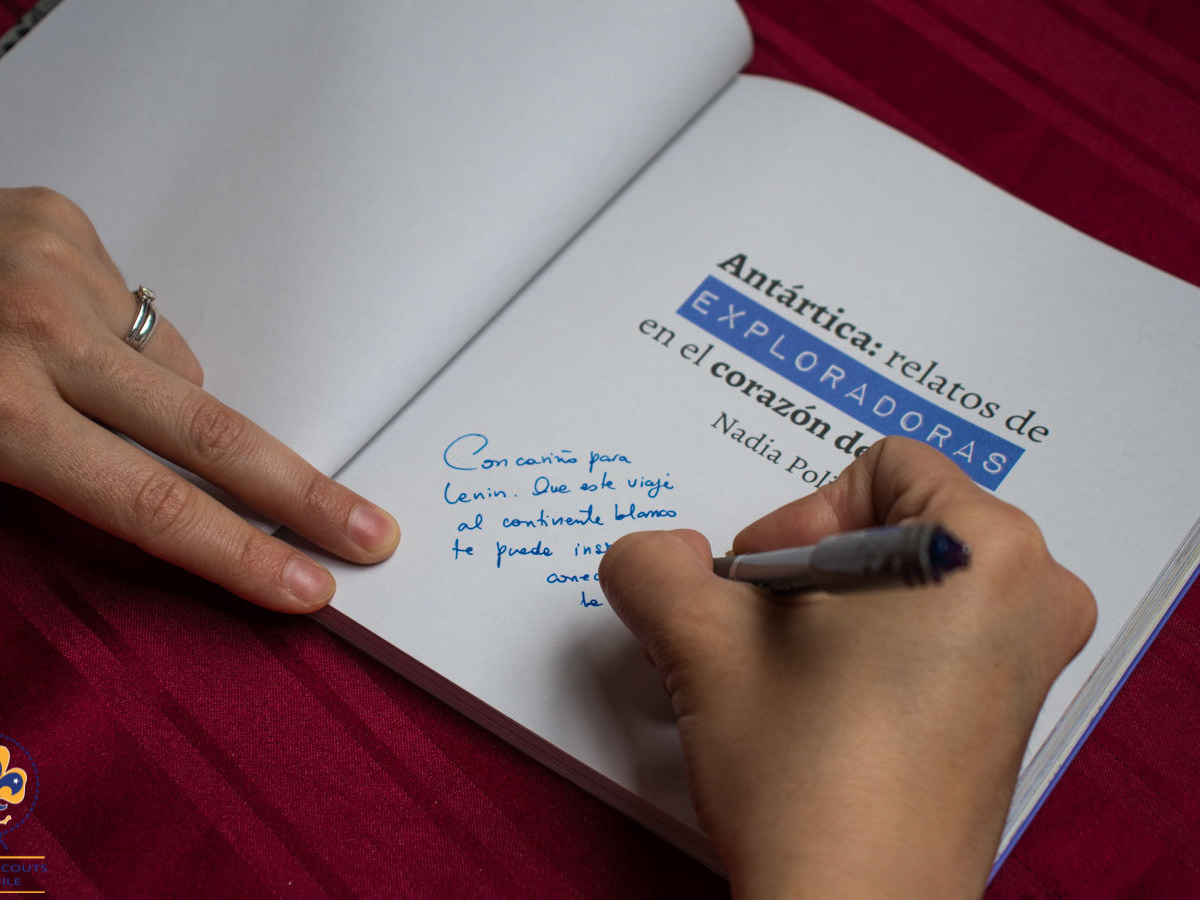 Antártica: relatos de
EXPLORADORAS
en el corazón de
Nadia
Con cariño para
Lenin. Que este viaje
al continente blanco
te puede
la